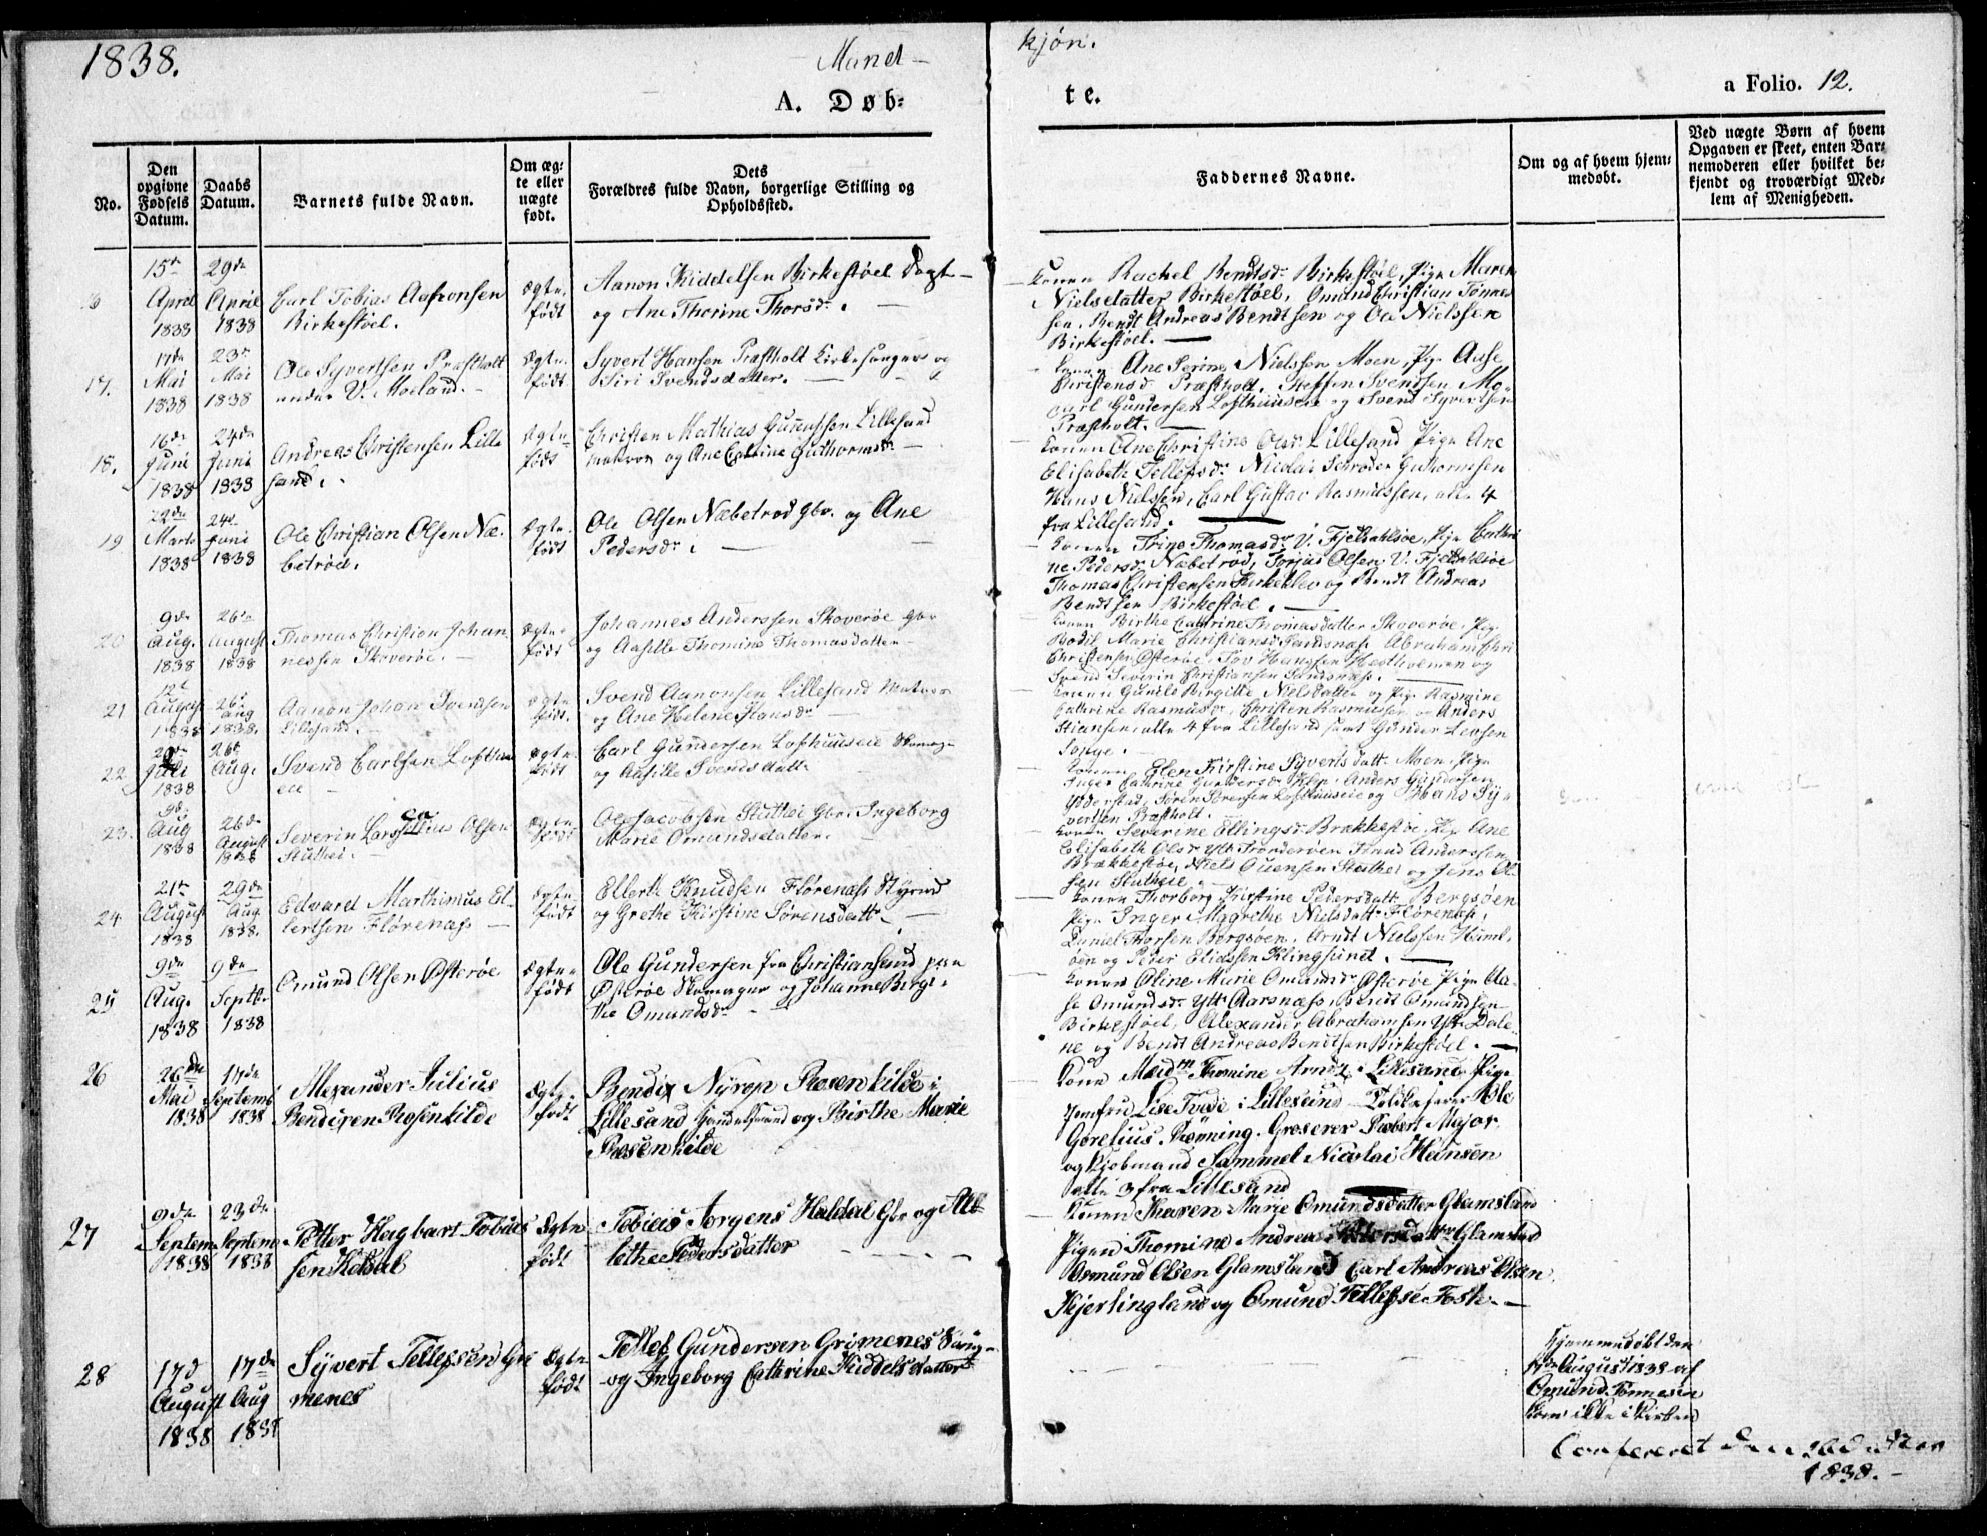 1838.
Mand-
kjøn.
A. Døb=
te.
a Folio. 12.
No.
Den opgivne Fødsels Datum.
Daabs Datum.
Barnets fulde Navn.
Om æg= te eller uægte født.
Dets Forældres fulde Navn, borgerlige Stilling og Opholdssted.
Faddernes Navne.
Om og af hvem hjem= medøbt.
Ved uægte Børn af hvem Opgaven er skeet, enten Bar= nemoderen eller hvilket be= kjendt og troværdigt Med= lem af Menigheden.
15de April 1838
29de April 1838
Carl Tobias Aanonsen
Birkestøel.
Ægte født
Aanon Kiddelsen Birkestøel
og Ane Thorine Thorsdr.
Konen Rachel Bendtsdr Birkestøel, Pige Maren
Nielsdatter Birkestøel, Omund Christian Tønnes
sen, Bendt Andreas Bendtsen og Ole Nielssen
Birkestøel.
17.
17de Mai 1838
23de Mai 1838
Ole Syvertsen Præstholt
under V. Moeland.
Ægte født
Syvert Hansen Præstholt Kirkesanger og
Siri Svendsdatter.
Konen Ane Serine Nielssen Moen, Pige Aase
Christensdr Præstholt, Steffen Svendsen Mo-
Carl Gundersen Lofthuuseie og Svend Syvertsen
Præstholt.
18.
16de Juni 1838
24de Juni 1838
Andreas Christensen Lille
sand.
Ægte født
Christen Mathias Guttormsen Lillesand
Matros og Ane Catrine Guthormsdr
Konen Ane Christine Olsdr Lillesand Pige Ane
Elisabeth Tellefsdr Nicolai Schrøder Guthormsen
Hans Nielsen, Carl Gustav Rasmussen, alle 4
fra Lillesand.
19
22de Marts 1838
24de Juni 1838
Ole Christian Olsen Næ-
betrød.
Ægte født
Ole Olsen Næbetrød Gbr. og Ane
Pedersdr
Konen Trine Thomasdr V. Fjeldahlsøe, Pige Cathri
ne Pedersdr Næbetrød, Torjus Olsen V. Fjeldahlsøe
Thomas Christensen Kirkeklev og Bendt Andreas
Bendtsen Birkestøel.
20
9de Aug. 1838
26de August 1838
Thomas Christian Johan-
nessen Skoverøe.
Ægte født
Johannes Anderssen Skoverøe Gbr
og Aasille Thomine Thomasdatter
Konen Birthe Cathrine Thomasdatter Skoverøe, Pige
Bodil Marie Christiansdr Sandsnæs, Abraham Chri
Christensen Østerøe, Tov Hanssen Hestholmen og
Svend Severin Christiansen Sandsnæs.
21
12te August 1838
26de Aug 1838.
Aanon Johan Svendsen
Lillesand.
Ægte født.
Svend Aanonsen Lillesand Matros
og Ane Helene Hansdr
Konen Gunild Birgitte Nielsdatter og Pige Rasmine
Cathrine Rasmusdr, Christen Rasmussen og Anders
Stiansen, alle 4 fra Lillesand samt Gunder Levsen
22
Juli 1838
26de Aug.
Svend Carlsen Lofthuus
eie
Ægte født
Carl Gundersen Lofthuuseie Skomag-
og Aasille Svendsdatt
Konen Elen Kirstine Syvertsdatt Moen, Pige
Inger Cathrine Gundersdr Klep, Anders Gundersen
Søren Sørensen Lofthuuseie og Hans Sy-
vertsen Præstholt.
23.
9de Aug 1838
26de August 1838
Severin Larssenius Olsen
Stuthei.
Ægte født
Ole Jacobsen Stuthei Gbr. Ingeborg
Marie Omundsdatter.
Konen Severine Ellingsdr Brækkestøe, Pige Ane
Elisabeth Olsdr Knud Anderssen
Brækkestøe, Niels Ouensen Stuthei og Jens Ol-
sen Stutheie.
24
21de August 1838
29de Aug 1838.
Edvard Marthinius El-
lertsen Flørenæs
Ægte født
Ellert Knudsen Flørenæs Styrmd
og Grethe Kirstine Sørensdattr
Konen Thorborg Kirstine Pedersdatt Bergsøen
Pige Inger Maggrethe Nielsdattr Flørenæs,
Daniel Thorsen Bergsøen, Arndt Nielssen Huml-
øen og Peder Eliassen Klingsund.
25
9de Aug. 1838
9de Septb. 1838
Omund Olsen Østerøe
Ægte født
Ole Gundersen fra Christiansund paa
Østerøe Skomager og Johanne Birgi-
the Omundsdr
Konen Oline Marie Omundsdr Østerøe Pige Aa-
se Omundsdr Yttr Aarsnæss, Bendt Omundsen
Birkestøel, Alexander Abrahamsen Dale-
ne og Bendt Andreas Bendtsen Birkestøel.
26
26de Mai 1838
17de Septemb 1838
Alexander Julius
Bendixen Rosenkilde
Ægte født
Bendix Nyrop Rosenkilde i
Lillesand Handelsmand og Birthe Marie
Rosenkilde
Kone Madm Thomine Arndtz Lillesand, Pige
Jomfrud Lise Tvede i Lillesand Toldkaserer Ole
Gorelius Rønning, Groserer Robert Major,
og Kjøbmand Sammel Nicolai Hansen
alle 3 fra Lillesand
27
9de Septem 1838
23de Septem 1838
Petter Hagbart Tobias
sen Heldal
Ægte født
Tobias Jørgens Heldal Gbr og Ale
lethe Pedersdatter
Konen Karen Marie Omundsdatter Glamsland
Pigen Thomine Andrea Glamsland
Osmund Olsen Glamsland Carl Andreas Olsen
Kjerlingland og Omund Tellefse Foss.
28
17d August 1838
17de Aug 1838
Syvert Tellefsen Gri
menes
Ægte født
Tellef Gundersen Grimenes
og Ingeborg Cathrine Kiddelsdatter
Hjemmedøbt den
17de August 1838 af
Omund Tønnesen
kom ikke i Kirken
Confereret den
1838.